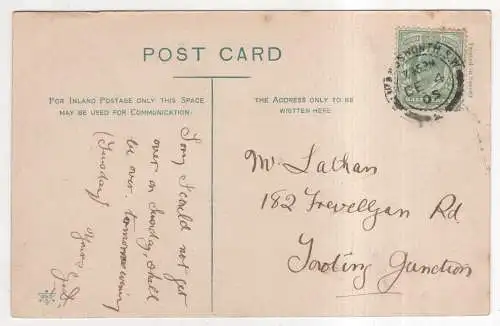 POST CARD
FOR INLAND POSTAGE ONLY THIS SPACE
MAY BE USED FOR COMMUNICATION.
THE ADDRESS ONLY TO BE
WRITTEN HERE.
Sorry I could not get
over on Sunday, shall
be over tomorrow evening
(Tuesday)
Yours
Mr Lathan
182 Trevellyan Rd
Tooting Junction
WANDSWORTH S.W.
DE 4
05